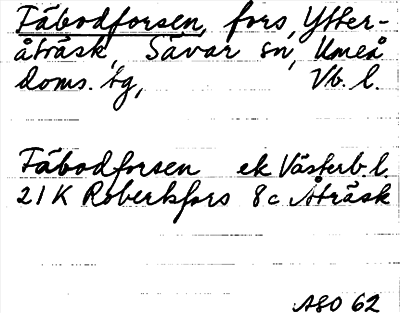 Fäbodforsen, fors, Ytter-
åträsk, Sävar sn, Umeå
doms. tg, Vb. l.
Fäbodforsen ek Västerb. l.
21K Robertsfors 8c Åträsk
ASO 62